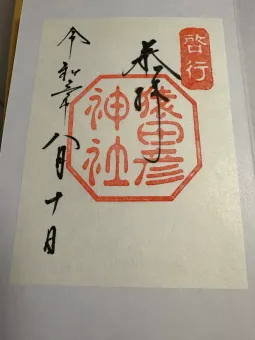 啓行
奉拝
猿田彦
神社
令和年八月十日